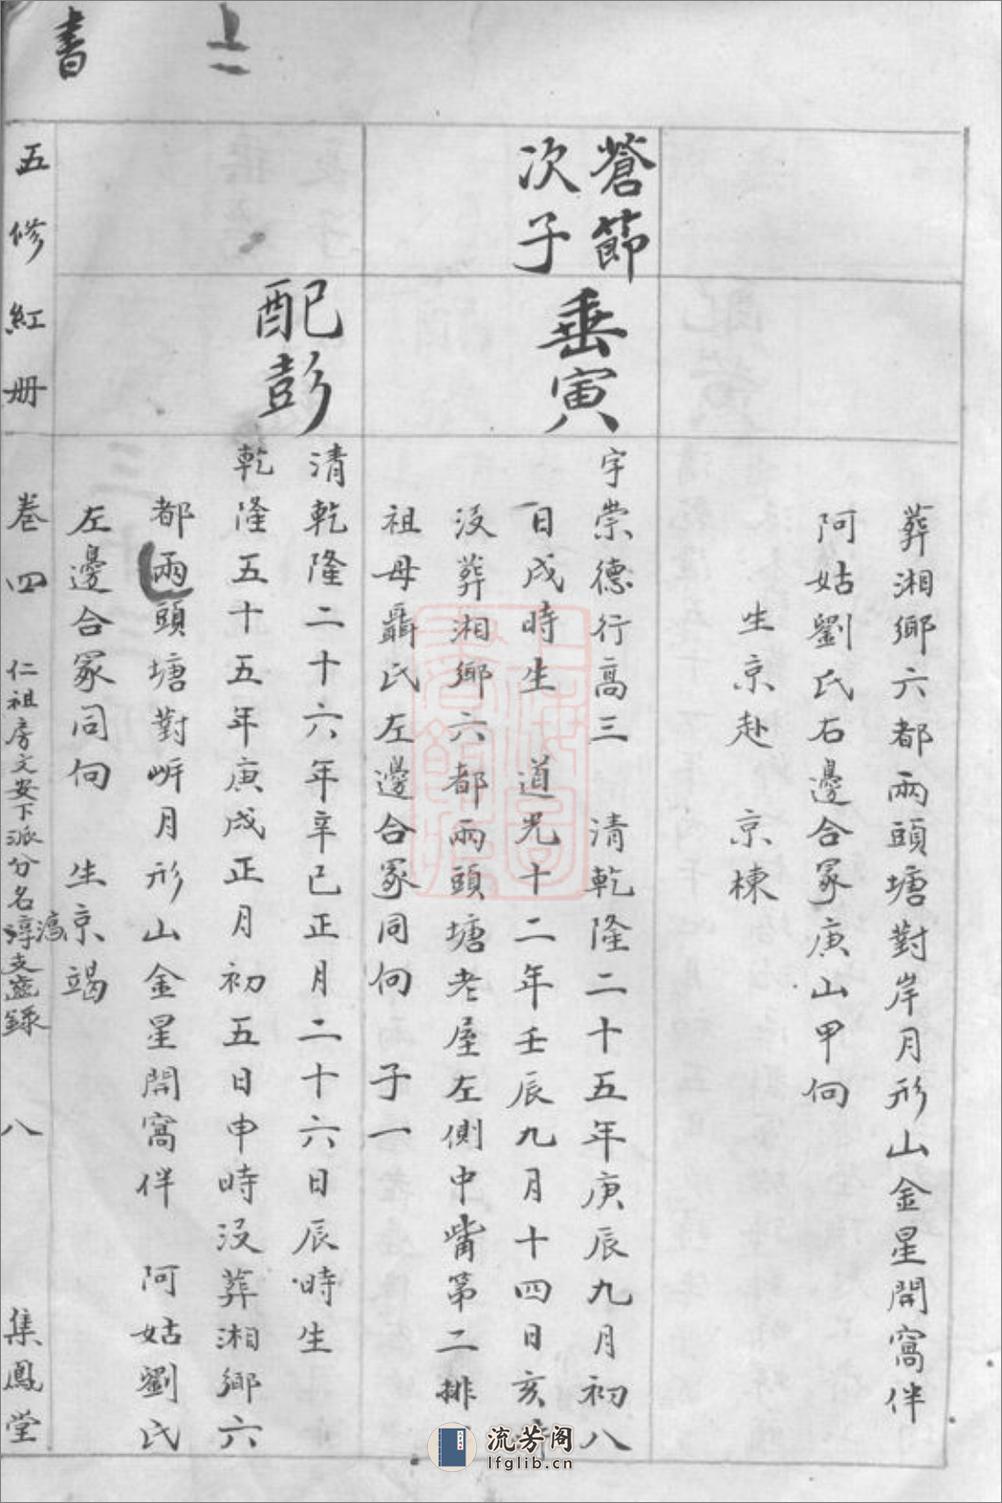 葬湘鄉六都兩頭塘對岸月形山金星開窩伴
阿姑劉氏右邊合冢庚山甲向
生京赴 京棟
蒼節
次子
垂寅
字崇德行高三 清乾隆二十五年庚辰九月初八
日戌時生 道光十二年壬辰九月十四日亥
没葬湘鄉六都兩頭塘老屋左側中嘴第二排
祖母聶氏左邊合冢同向 子一
配彭
清乾隆二十六年辛巳正月二十六日辰時生
乾隆五十五年庚戌正月初五日申時没葬湘鄉六
都兩頭塘對岍月形山金星開窩伴 阿姑劉氏
左邊合冢同向 生京竭
五修紅册
卷四 仁祖房文安下派分名淳支齒錄 八 集鳳堂
書
上
流芳阁
lfglib.cn